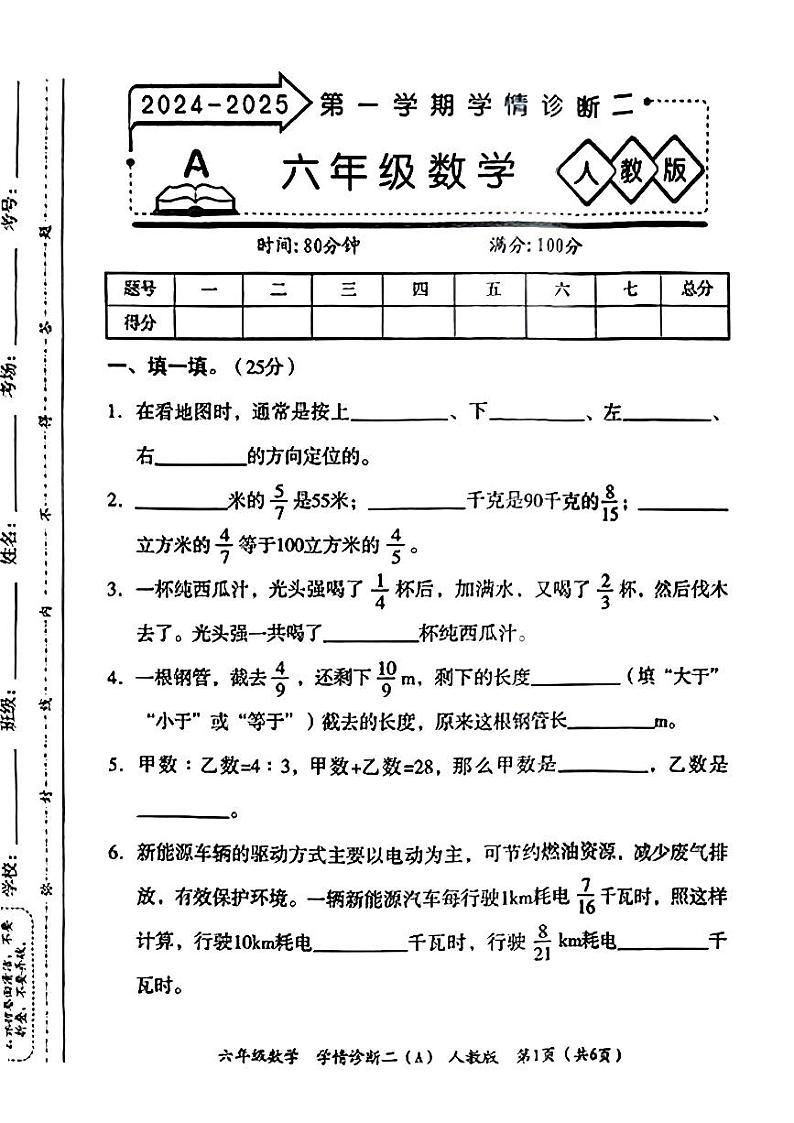 2024-2025 第一学期学情诊断二
A 六年级数学 人教版
时间:80分钟 满分:100分
题号 一 二 三 四 五 六 七 总分
得分
一、填一填。(25分)
1. 在看地图时,通常是按上________、下________、左________、
右________的方向定位的。
2. ________米的 5/7 是55米;________千克是90千克的 8/15;________
立方米的 4/7 等于100立方米的 4/5 。
3. 一杯纯西瓜汁,光头强喝了 1/4 杯后,加满水,又喝了 2/3 杯,然后伐木
去了。光头强一共喝了________杯纯西瓜汁。
4. 一根钢管,截去 4/9 ,还剩下 10/9 m,剩下的长度________(填“大于”
“小于”或“等于”)截去的长度,原来这根钢管长________m。
5. 甲数:乙数=4:3,甲数+乙数=28,那么甲数是________,乙数是
________。
6. 新能源车辆的驱动方式主要以电动为主,可节约燃油资源,减少废气排
放,有效保护环境。一辆新能源汽车每行驶1km耗电 7/16 千瓦时,照这样
计算,行驶10km耗电________千瓦时,行驶 8/21 km耗电________千
瓦时。
六年级数学 学情诊断二(A) 人教版 第1页(共6页)
学校:________ 班级:________ 姓名:________ 考场:________ 考号:________
弥 封 线 内 不 得 答 题
折叠,不要弄破。